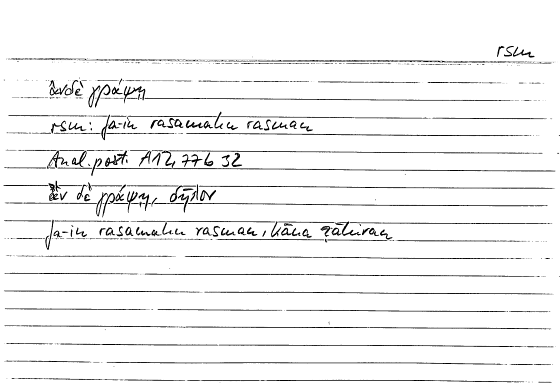 rsm
ἐὰν δὲ γράψῃ
rsm: fa-in rasamahu rasman
Anal. post. A12, 77b 32
ἐὰν δὲ γράψῃ, δῆλον
fa-in rasamahu rasman, kāna ẓāhiran